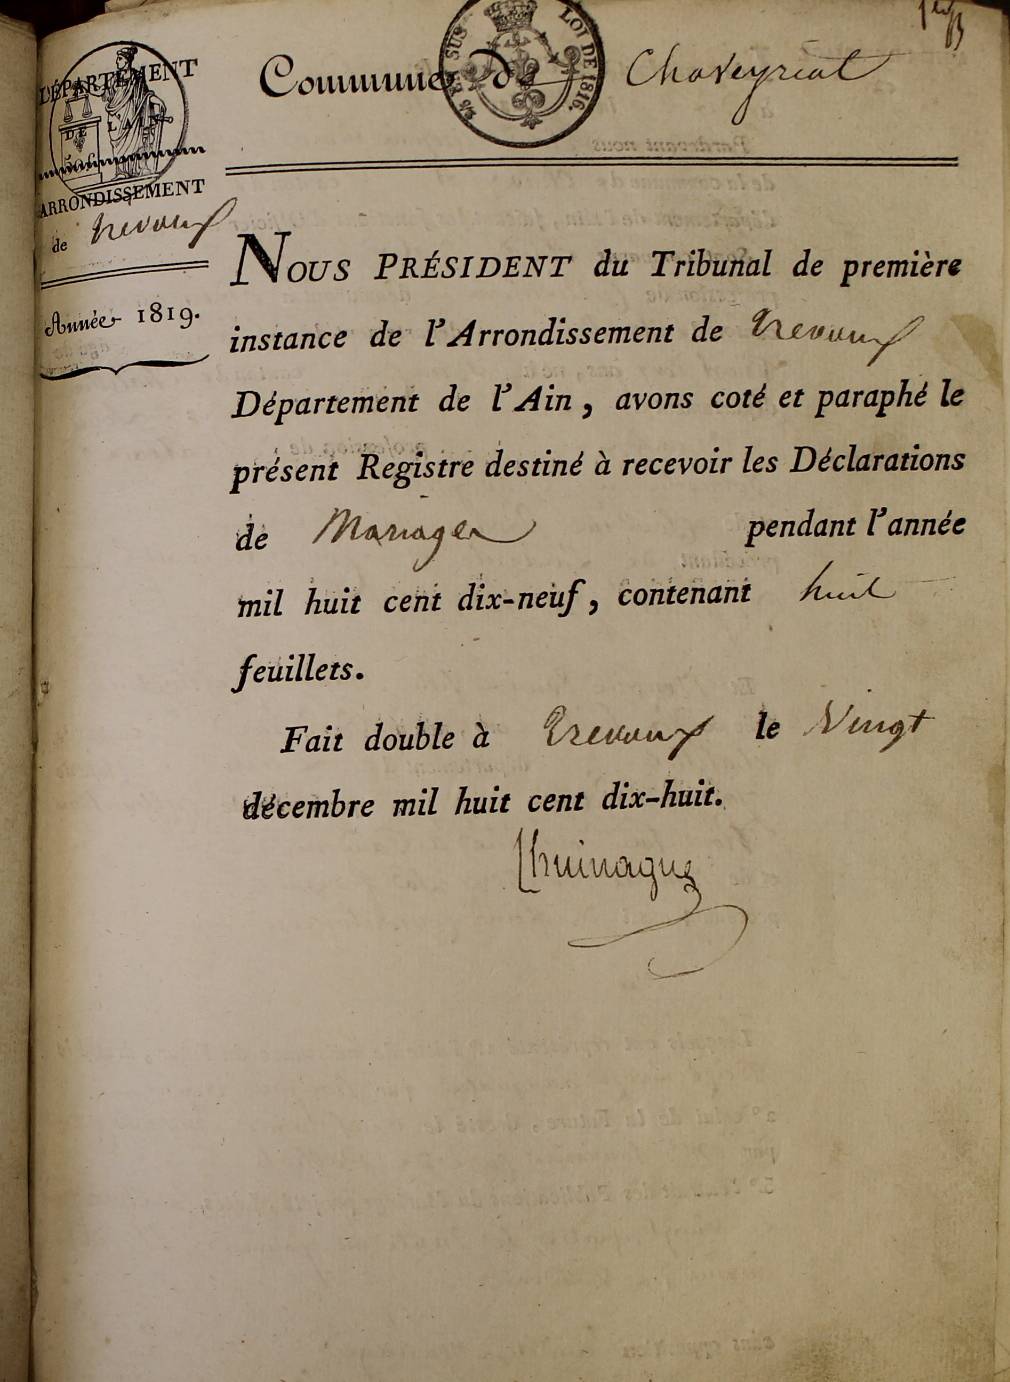 DÉPARTEMENT
DE L'AIN
ARRONDISSEMENT
de Trevoux
Année 1819.
Commune de Chaveyriat
EN SUS
LOI DE 1816.
1er
NOUS PRÉSIDENT du Tribunal de première
instance de l'Arrondissement de Trevoux
Département de l'Ain, avons coté et paraphé le
présent Registre destiné à recevoir les Déclarations
de Mariages pendant l'année
mil huit cent dix-neuf, contenant huit
feuillets.
Fait double à Trevoux le Vingt
décembre mil huit cent dix-huit.